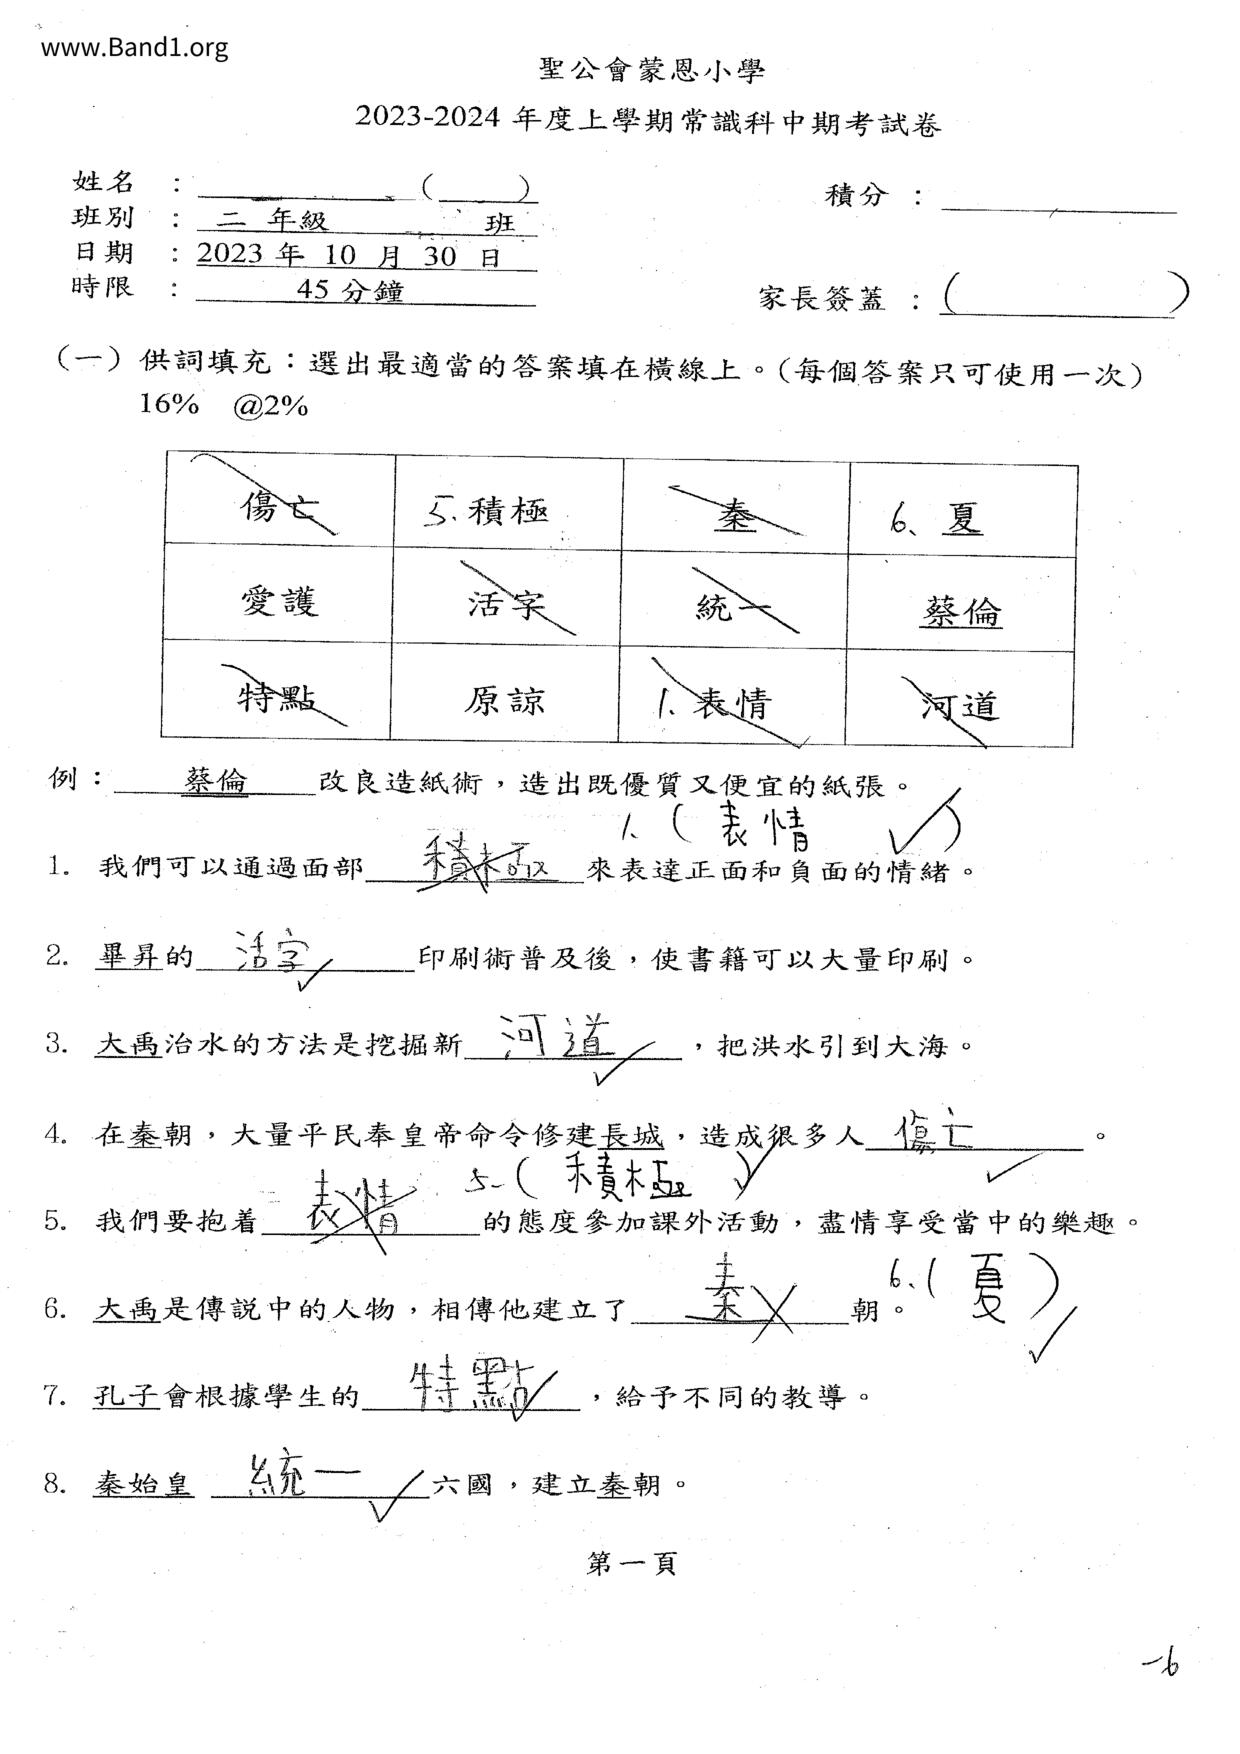 www.Band1.org
聖公會蒙恩小學
2023-2024 年度上學期常識科中期考試卷
姓名 : ( )
積分 :
班別 : 二 年級 班
日期 : 2023 年 10 月 30 日
時限 : 45 分鐘
家長簽蓋 : ( )
(一) 供詞填充：選出最適當的答案填在橫線上。(每個答案只可使用一次)
16% @2%
傷亡 5.積極 秦 6、夏
愛護 活字 統一 蔡倫
特點 原諒 1.表情 河道
例：蔡倫改良造紙術，造出既優質又便宜的紙張。
1.(表情)
1. 我們可以通過面部積極來表達正面和負面的情緒。
2. 畢昇的活字印刷術普及後，使書籍可以大量印刷。
3. 大禹治水的方法是挖掘新河道，把洪水引到大海。
4. 在秦朝，大量平民奉皇帝命令修建長城，造成很多人傷亡。
5-(積極)
5. 我們要抱着表情的態度參加課外活動，盡情享受當中的樂趣。
6.(夏)
6. 大禹是傳說中的人物，相傳他建立了秦朝。
7. 孔子會根據學生的特點，給予不同的教導。
8. 秦始皇統一六國，建立秦朝。
第一頁
-6